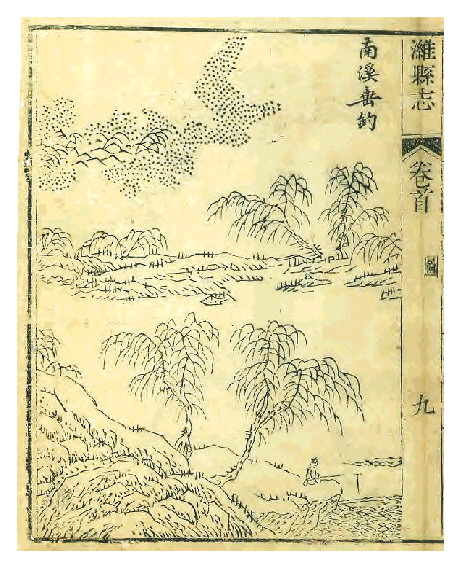 南溪垂釣
濰縣志
卷首
圖
九